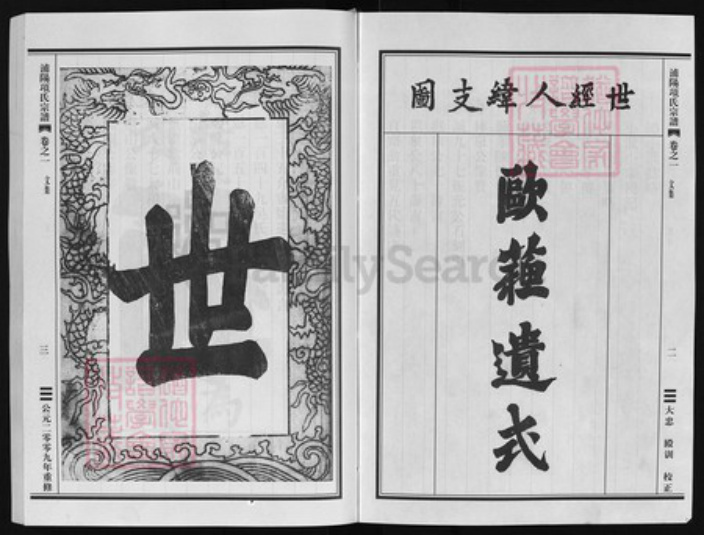 浦陽項氏宗譜 卷之一 文集
二
大忠 殿训 校正
世經人緯支圖
歐蘓遺式
世
浦陽項氏宗譜 卷之一 文集
三
公元二零零九年重修
FamilySearch